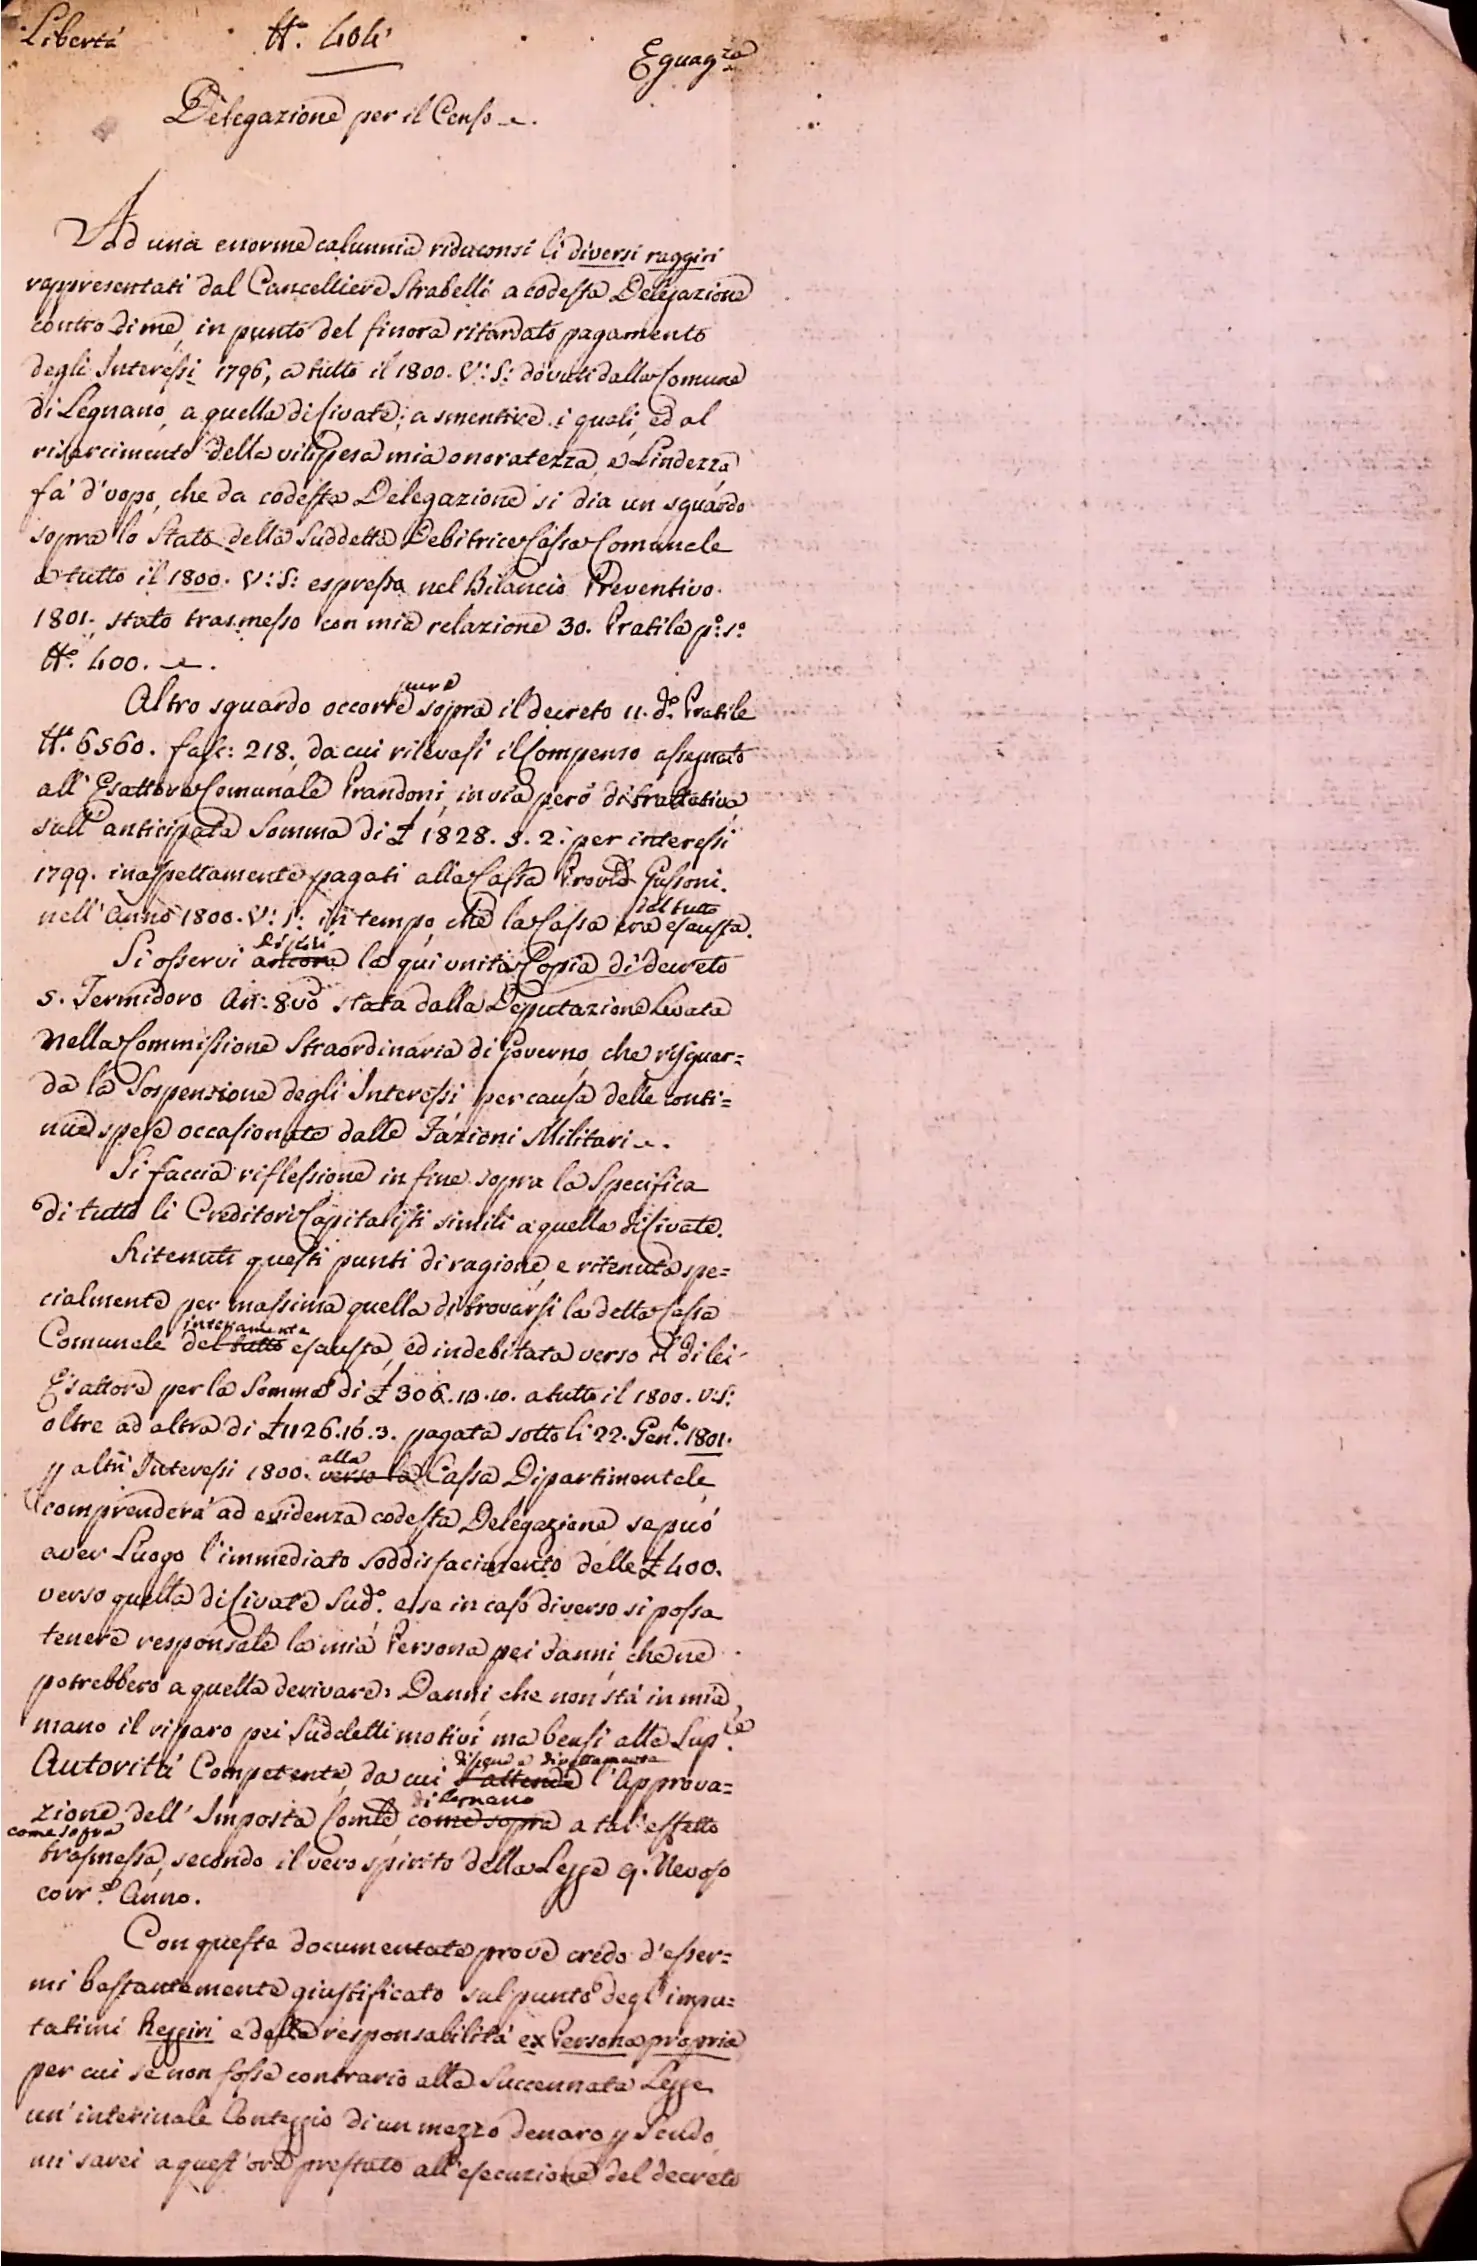 Libertà N.° 404 Eguag.za
Delegazione per il Censo
Ad una enorme calunnia riduconsi li diversi raggiri
rappresentati dal Cancelliere Strabelli a codesta Delegazione
contro di me, in punto del finora ritardato pagamento
degli Interessi 1796, a tutto il 1800. V: S: dovuti dalla Comune
di Legnano, a quella di Civate; a smentire i quali, ed al
risarcimento della vilipesa mia onoratezza, e Lindezza
fa' d'uopo, che da codesta Delegazione si dia un sguardo
sopra lo Stato della Suddetta Debitrice Cassa Comunale
a tutto il 1800. V: S: espressa nel Bilancio Preventivo
1801., stato trasmesso con mia relazione 30. Pratile p.° s.°
N.° 400.
pure
Altro sguardo occorre sopra il decreto 11. d.° Pratile
N.° 6560. fasc: 218., da cui rilevasi il Compenso assegnato
all' Esattore Comunale Prandoni, in via però di trattativa,
sull' anticipata Somma di £ 1828. 5. 2. per interessi
1799. inaspettamente pagati alla Cassa Prov.le Gussoni.
nell' Anno 1800. V: S: in tempo, che la Cassa era esausta.
del tutto
Si osservi ancora la qui unita Copia di decreto
5. Termidoro An: 8vo stata dalla Deputazione Levata
nella Commissione Straordinaria di Governo, che risguar=
da la Sospensione degli Interessi per causa delle conti=
nue spese occasionate dalle Fazioni Militari.
Si faccia riflessione in fine sopra la Specifica
di tutto li Creditori Capitalisti simili a quella di Civate.
Ritenuti questi punti di ragione, e ritenuta spe=
cialmente per massima quella di trovarsi la detta Cassa
interamente
Comunale del tutto esausta, ed indebitata verso il di lei
Esattore per la Somma di £ 306. 13. 10. a tutto il 1800. V: S:
oltre ad altra di £ 1126. 16. 3. pagata sotto li 22. Gen.° 1801.
alla
p altri Interessi 1800. verso la Cassa Dipartimentale,
comprenderà ad evidenza codesta Delegazione se può
aver Luogo l'immediato soddisfacimento delle £ 400.
verso quella di Civate Sud.° e se in caso diverso si possa
tenere responsale la mia Persona pei danni, che ne
potrebbero a quella derivare; Danni, che non stà in mia
mano il riparo pei Suddetti motivi, ma bensi alla Sup.re
dipende direttamente
Autorità Competente, da cui s'attende l'Approva=
di Legnano
zione dell' Imposta Com.le, come sopra a tal' effetto
come sopra
trasmessa, secondo il vero spirito della Legge 9. Nevoso
corr.e Anno.
Con queste documentate prove credo d'esser=
mi bastantemente giustificato sul punto degl' impu=
tatimi Reggiri e della responsabilità ex Persona propria,
per cui se non fosse contrario alla Succennata Legge
un' interinale Conteggio di un mezzo denaro p Scudo,
mi sarei a quest' ora prestato all' esecuzione del decreto